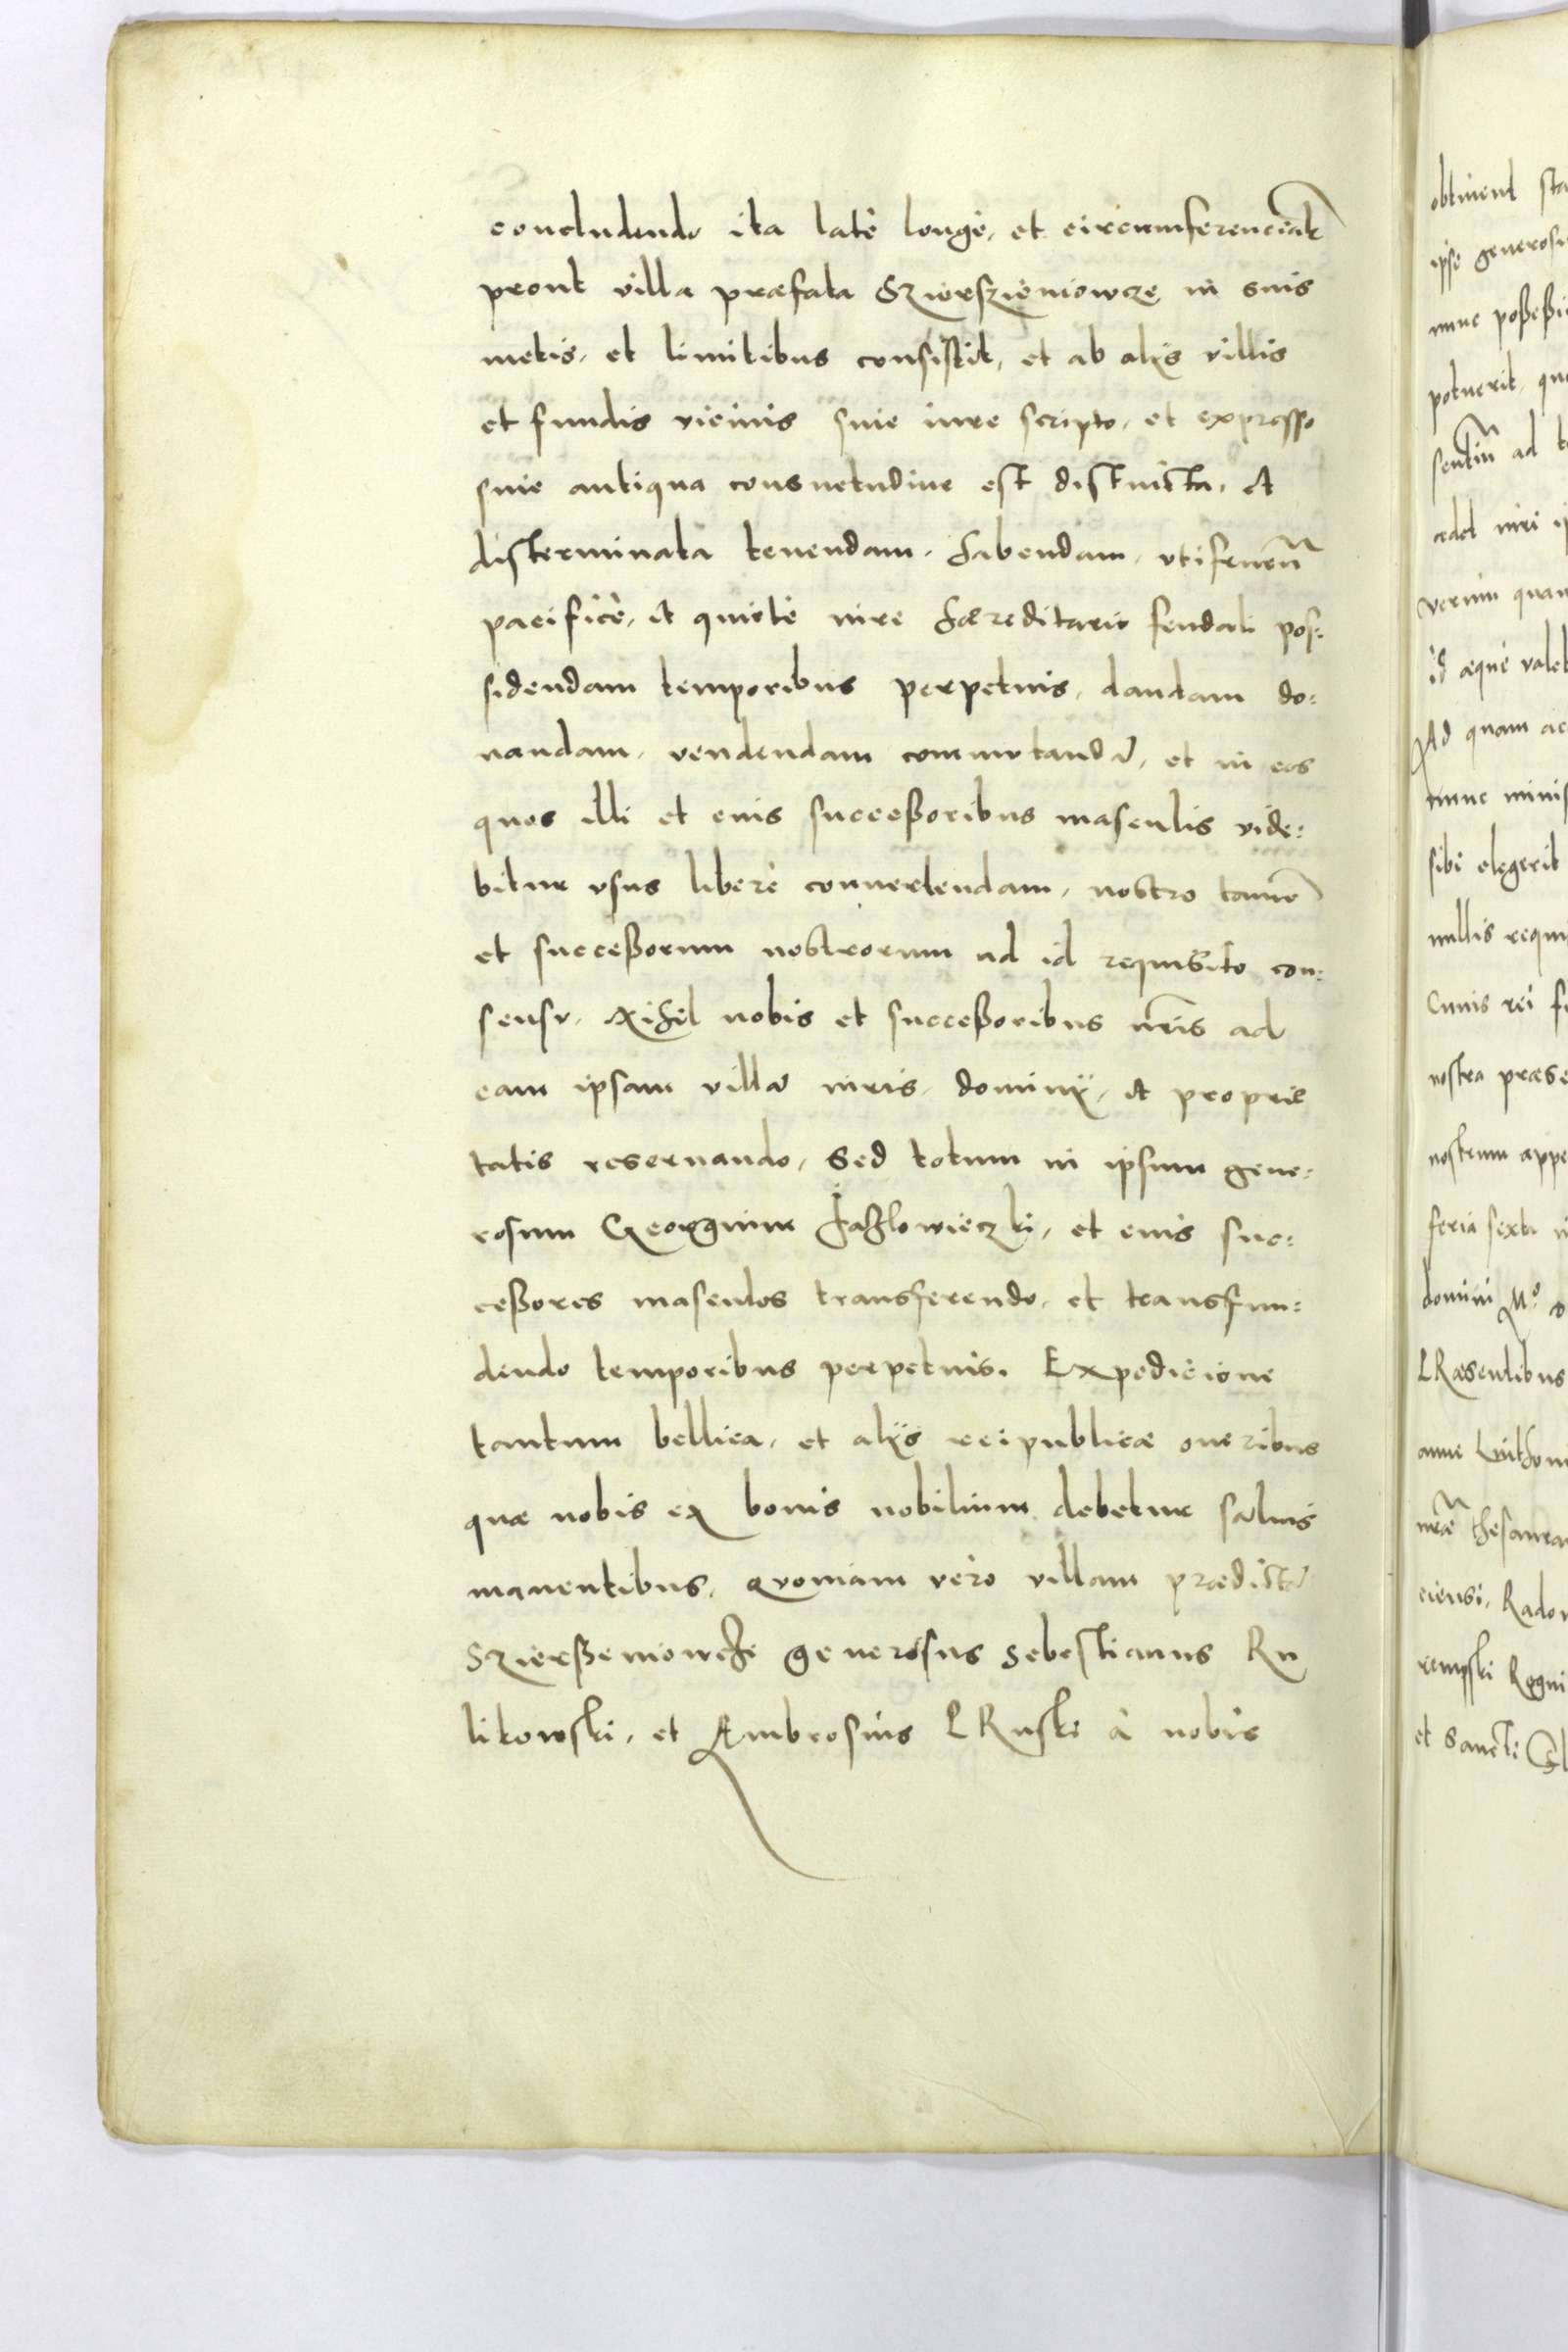 concludendo ita late longe, et circumferencialr
prout villa præfata Szierszieniowcze in suis
metis, et limitibus consistit, et ab alijs villis
et fundis vicinis siue iure scripto, et expresso
siue antiqua consuetudine est distincta, et
disterminata tenendam, habendam, vtifruen̄
pacifice, et quiete iure hæreditario feudali pos:
sidendam temporibus perpetuis, dandam do:
nandam, vendendam commutandā, et in eos
quos illi et eius successoribus masculis vide:
bitur vsus libere conuertendam, nostro tamē
et successorum nostrorum ad id requisito con:
sensu, Nihil nobis et successoribus nr̄is ad
eam ipsam villā iuris, dominij, et proprie
tatis reseruando, Sed totum in ipsum gene:
rosum Georgium Jazlowieczki, et eius suc:
cessores masculos transferendo, et transfun:
dendo temporibus perpetuis. Expedicione
tantum bellica, et alijs reipublicæ oneribus
quæ nobis ex bonis nobilium debetur saluis
manentibus, Quoniam vero villam prædictā
Szierszeniowczi generosus Sebestianus Ru
likowski, et Ambrosius PRuski à nobis
obtinent
ipse
nunc
potuerit,
ad
verum
id æque
Ad quam
nunc
sibi elegerit
nullis
Cuius rei
nostra
nostrum
feria sexta
domini Mº
PRæsentibus
nr̄æ
ciensi,
Regni
et Sancti